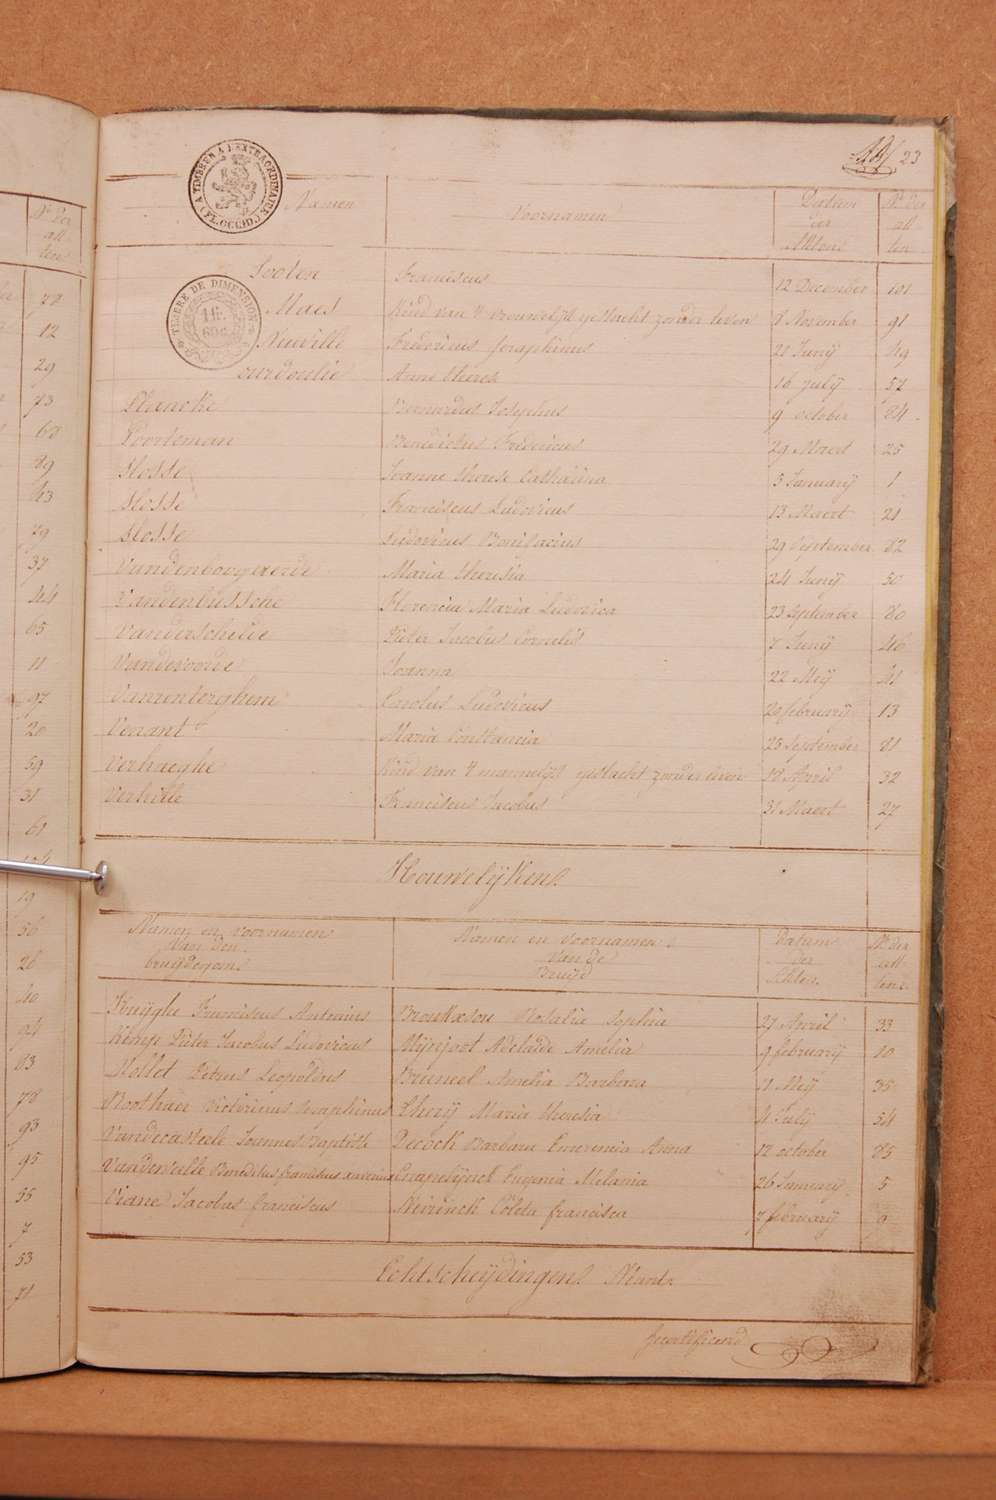 23
A TIMBRER A L'EXTRAORDINAIRE
(FL. OCCID.)
TIMBRE DE DIMENSION
Namen Voornamen Datum der Aktens No der akten
Looten Franciscus 12 December 101
Maes Kind van 't vrouwelijk geslacht zonder leven 8 November 91
Neuville Fredericus Seraphinus 21 Junij 49
Anne Theres 16 July 57
Plancke Bernardus Josephus 9 october 24
Poorteman Benedictus Fredericus 29 Maert 25
Slosse Joanne therese Catharina 5 January 1
Slosse Franciscus Ludovicus 13 Maert 21
Slosse Ludovicus Bonifacius 29 September 82
Vandenboogaerde Maria theresia 24 Junij 50
Vandenbussche Florencia Maria Ludovica 23 September 80
Vanderschelde Pieter Jacobus Cornelis 7 Junij 46
Vandevoorde Joanna 22 Meij 41
Vanrenterghem Carolus Ludovicus 20 february 13
Venant Maria Constancia 25 September 81
Verhaeghe Kind van 't mannelijk geslacht zonder leven 18 April 32
Verhille Franciscus Jacobus 31 Maert 27
Houwelijkens
Namen en voornamen van den bruijdegom Namen en voornamen van de Bruijd Datum der Akten No der akten
Kuyghe Franciscus Antonius Brouckxsou Rosalia Sophia 27 April 33
Kimpe Pieter Jacobus Ludovicus Mynjoot Adelaide Amelia 9 february 10
Mollet Petrus Leopoldus Bruneel Amelia Barbara 11 Meij 35
Roothaer Victorinus Seraphinus Thery Maria theresia 4 July 54
Vandecasteele Joannes Baptiste Decock Barbara Emerenia Anna 12 october 85
Vandevelle Benedictus franciscus xaverius Craeneijnck Eugenia Melania 26 January 5
Viane Jacobus franciscus Neirinck Coleta francisca 7 february 9
Echtscheijdingens Néant
77
12
29
73
68
89
43
79
37
44
65
11
97
20
59
31
61
19
56
26
40
94
83
78
93
95
55
7
53
71